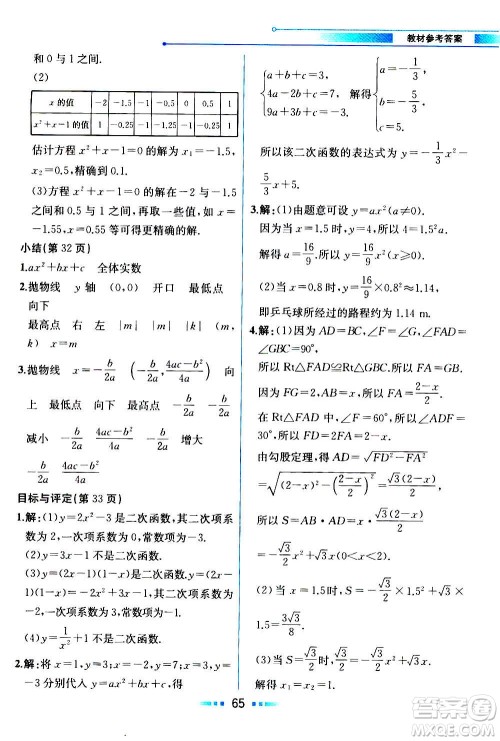 教材参考答案
和 0 与 1 之间.
(2)
x 的值 -2 -1.5 -1 -0.5 0 0.5 1
x²+x-1 的值 1 -0.25 -1 -1.25 -1 -0.25 1
估计方程 x²+x-1=0 的解 x₁=-1.5,
x₂=0.5,精确到 0.1.
(3)方程 x²+x-1=0 的解在-2 与-1.5
之间和 0.5 与 1 之间,再取一些值,如 x=
-1.55,x=0.55 等,精确度更高.
小结(第 32 页)
1.ax²+bx+c 全体实数
2.抛物线 y 轴 (0,0) 开口 最低点
向下
最高点 右 左 |m| |m| (m,
k) x=m
3.抛物线 x=-b/2a (-b/2a, 4ac-b²/4a) 向
上 最低点 向下 最高点 -b/2a -b/2a
减小 -b/2a 4ac-b²/4a -b/2a 增大
-b/2a 4ac-b²/4a
目标与评定(第 33 页)
1.解:(1)y=2x²-3 是二次函数,其二次项系
数为 2,一次项系数为 0,常数项为-3.
(2)y=3x-1 不是二次函数.
(3)y=2(1-x)(1+x)是二次函数,y=
2(1-x)(1+x)=-2x²+2,其二次项系数
为-2,一次项系数为 0,常数项为 2.
(4)y=1/x²+1 不是二次函数.
2.解:将 x=1,y=-3;x=-2,y=4;x=3,y=
-3 分别代入 y=ax²+bx+c,得
{a+b+c=-3, 4a-2b+c=4, 9a+3b+c=-3. 解得 {a=1/3, b=-5/3, c=
所以该二次函数的表达式为 y=1/3x²-
5/3x+5.
3.解:(1)由题意可设 y=ax²(a≠0).
因为当 x=1.5 时,y=4,所以 4=1.5²a,
解得 a=16/9.所以 y=16/9x²(x≥0).
(2)当 x=0.8 时,y=16/9×0.8²≈1.14,
即乒乓球所经过的路程约为 1.14 m.
4.解:(1)因为 AD=BC,∠F=∠G=90°,
所以 Rt△FAD≌Rt△GBC.所以 FA=BG.
因为 FG=2,AB=x,所以 FA=2-x/2.
在 Rt△AFD 中,∠F=60°,所以∠ADF=
30°.所以 AD=2FA=2-x.
由勾股定理,得 FD=√AD²-FA²
=√(2-x)²-(2-x/2)²=√3(2-x)/2.
所以 S=FA·BC=2-x/2·(2-x)=
(2)当 x=1.5 时,
1.5=3√3/8.
解得 x₁=0,x₂=1.
65